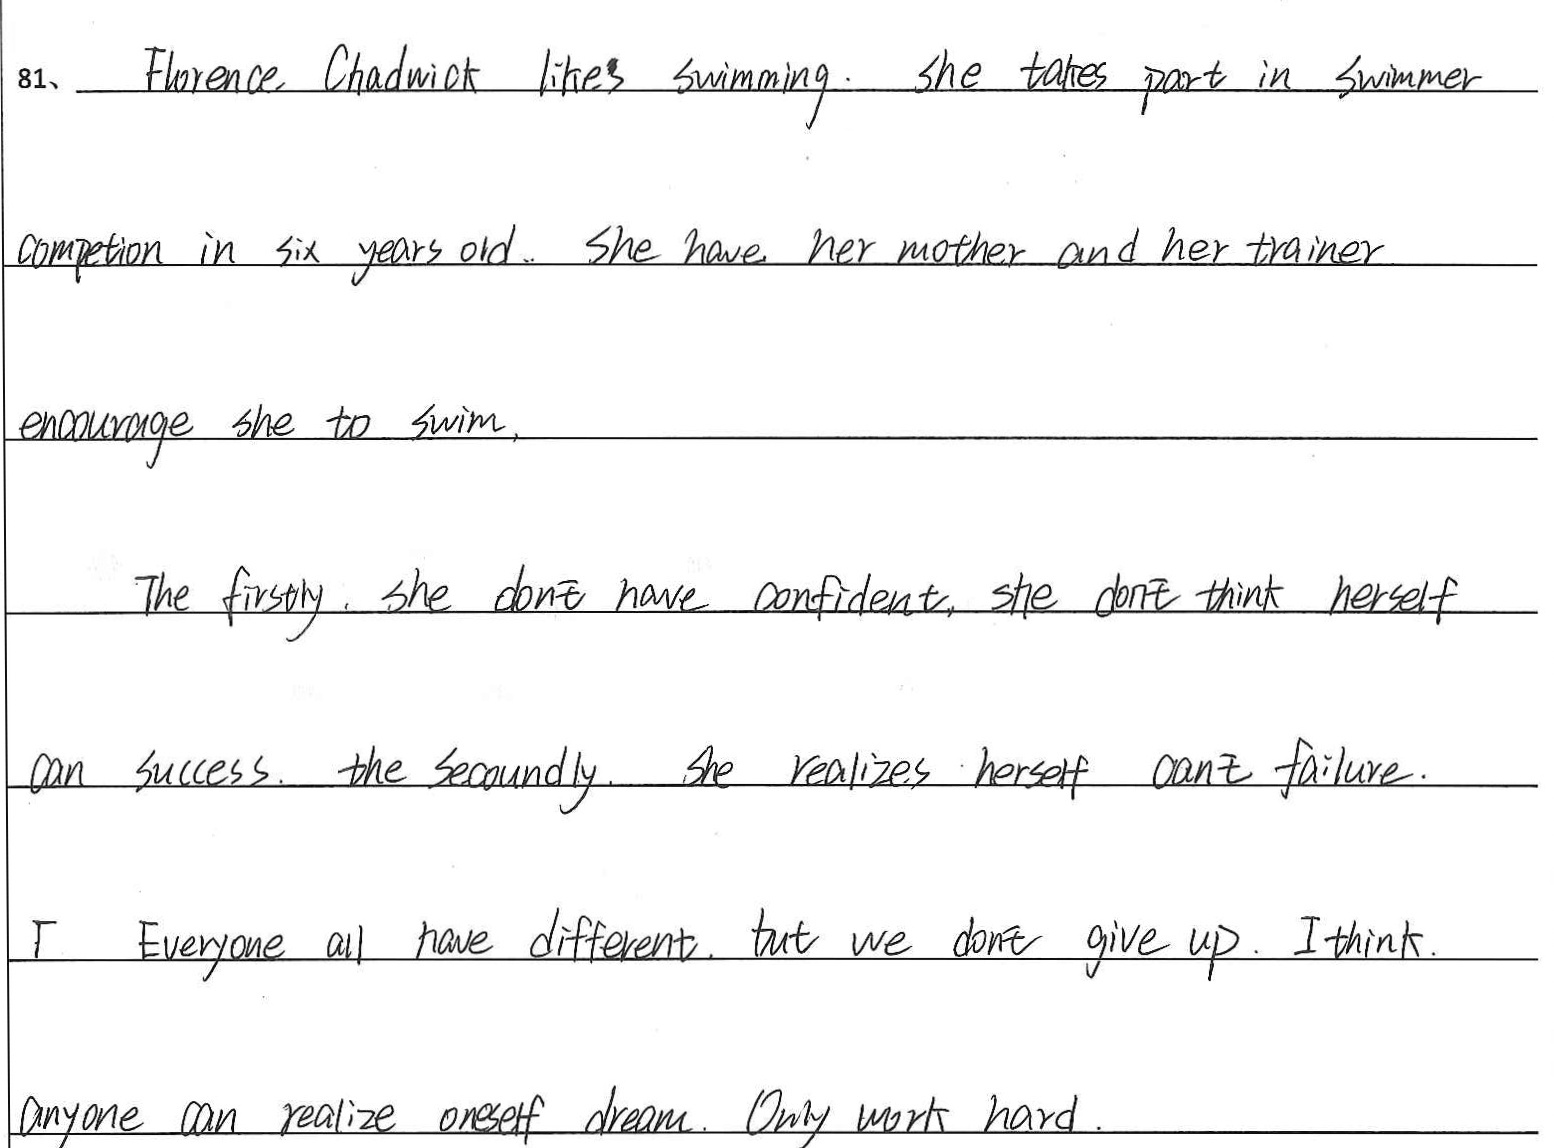 81、 Florence Chadwick likes swimming. She takes part in swimmer
competion in six years old. She have her mother and her trainer
encourage she to swim.
The firstly. she don't have confident, she don't think herself
can success. the secoundly. she realizes herself can't failure.
I Everyone all have different. but we don't give up. I think.
anyone can realize oneself dream. Only work hard.